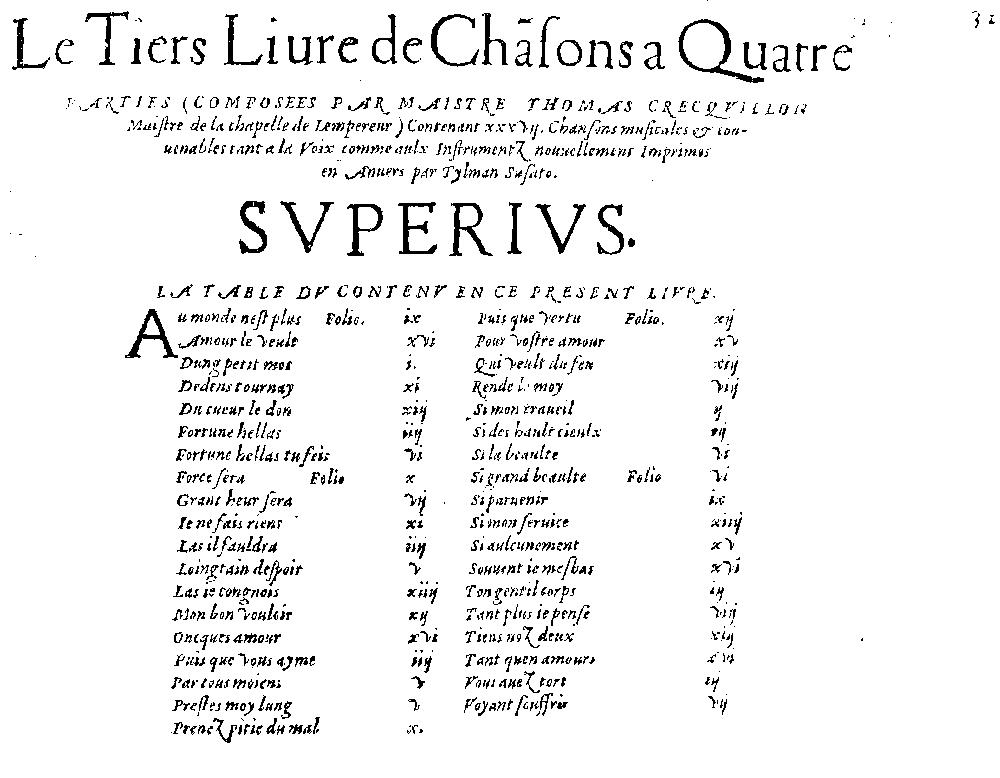 32
Le Tiers Liure de Chãſons a Quatre
PARTIES (COMPOSEES PAR MAISTRE THOMAS CRECQVILLON
Maiſtre de la chapelle de Lempereur ) Contenant xxxvij. Chanſons muſicales & con-
uenables tant a la Voix comme aulx Inſtrumentz nouuellement Imprimes
en Anuers par Tylman Suſato.
SVPERIVS.
LA TABLE DV CONTENV EN CE PRESENT LIVRE.
Au monde neſt plus Folio. ix
Amour le veult xvi
Dung petit mot i.
Dedens tournay xi
Du cueur le don xiij
Fortune hellas iij
Fortune hellas tu feis vi
Force ſera Folio x
Grant heur ſera vij
Ie ne fais riens xi
Las il fauldra iij
Loingtain deſpoir v
Las ie congnois xiiij
Mon bon vouloir xij
Oncques amour xvi
Puis que vous ayme iij
Par tous moiens v
Preſtes moy lung v
Prenez pitie du mal x.
Puis que vertu Folio. xij
Pour voſtre amour xv
Qui veult du feu xiij
Rende le moy viij
Si mon traueil ij
Si des hault cieulx ij
Si la beaulte vi
Si grand beaulte Folio vi
Si paruenir ix
Si mon ſeruice xiiij
Si aulcunement xv
Souuent ie meſbas xvi
Ton gentil corps ij
Tant plus ie penſe viij
Tiens noz deux xij
Tant quen amours xvi
Vous auez tort ij
Voyant ſouffrir vij